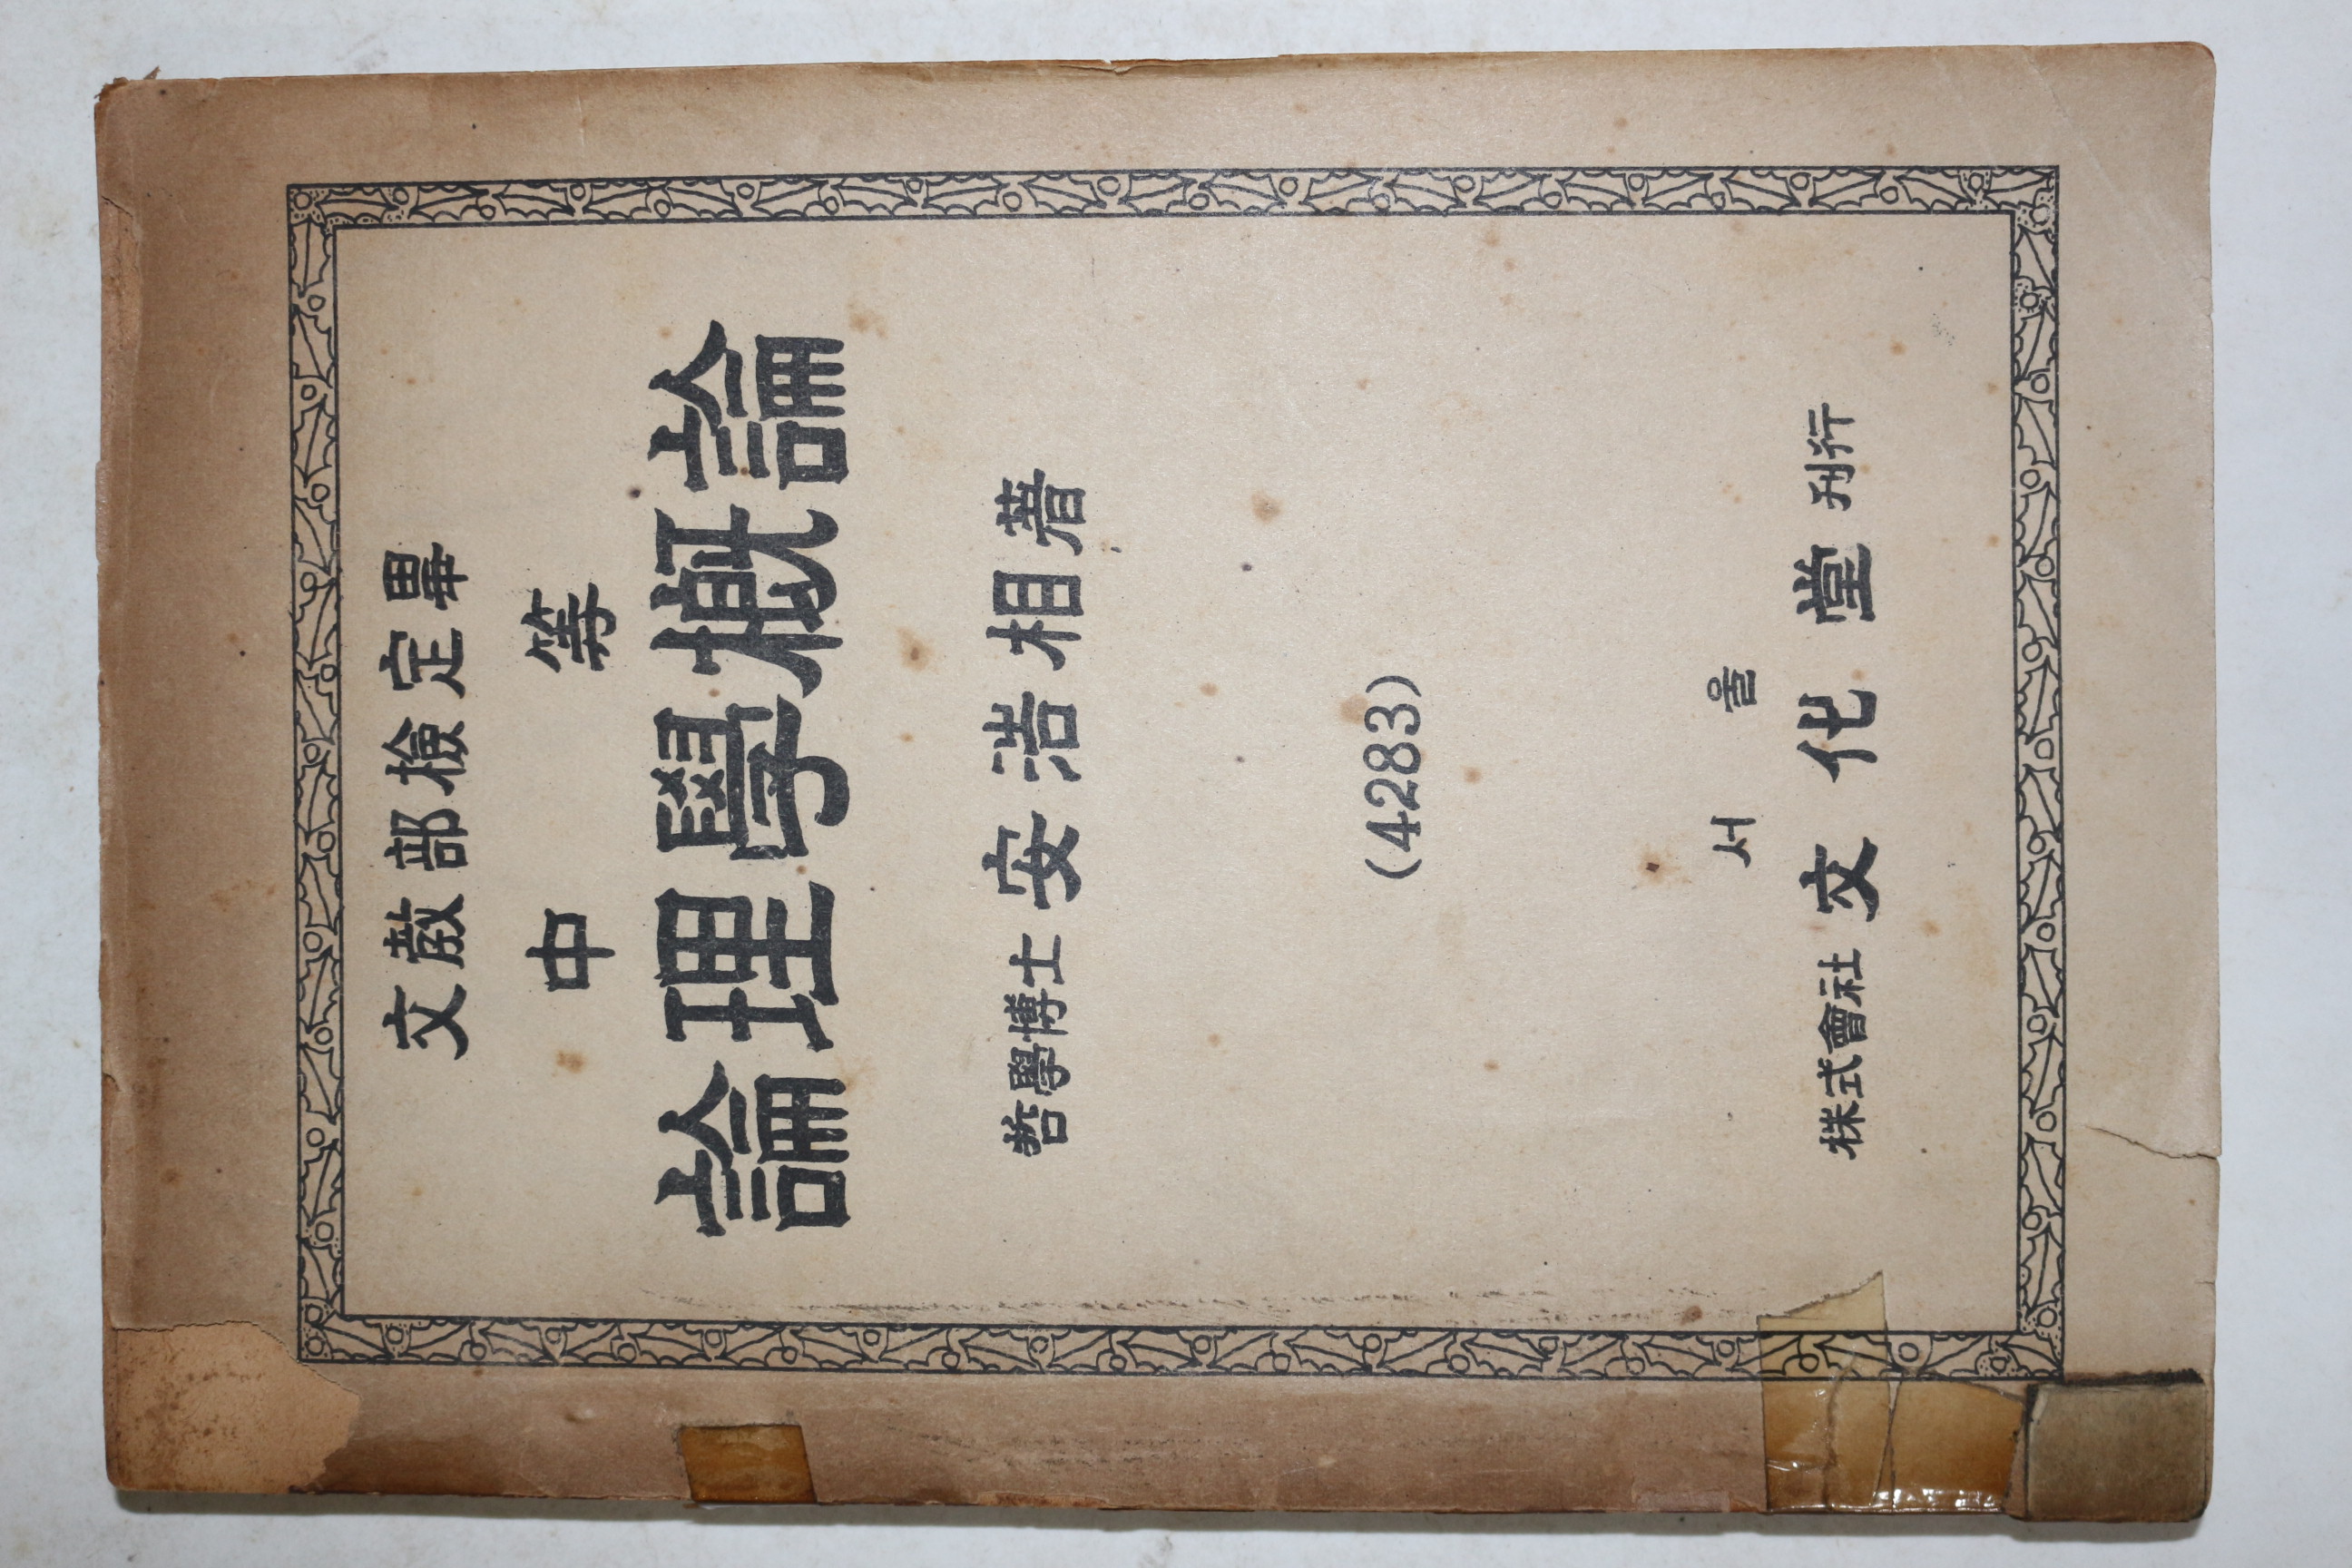 文敎部檢定畢
中等
論理學槪論
哲學博士 安浩相著
(4283)
서울
株式會社 文化堂 刊行